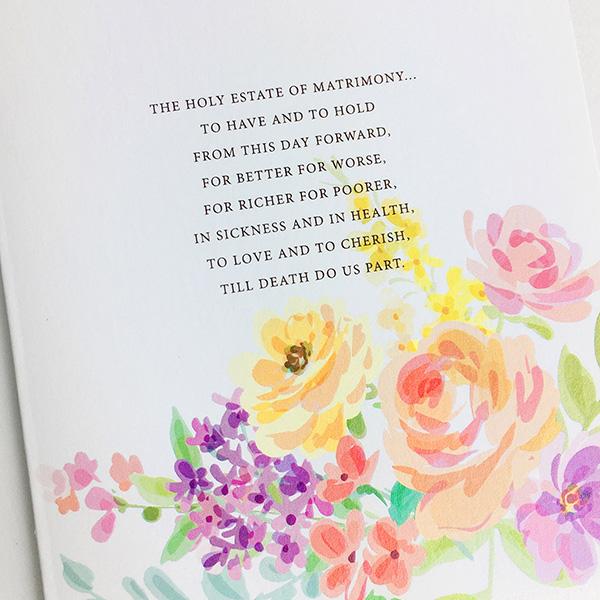 THE HOLY ESTATE OF MATRIMONY...
TO HAVE AND TO HOLD
FROM THIS DAY FORWARD,
FOR BETTER FOR WORSE,
FOR RICHER FOR POORER,
IN SICKNESS AND IN HEALTH,
TO LOVE AND TO CHERISH,
TILL DEATH DO US PART.